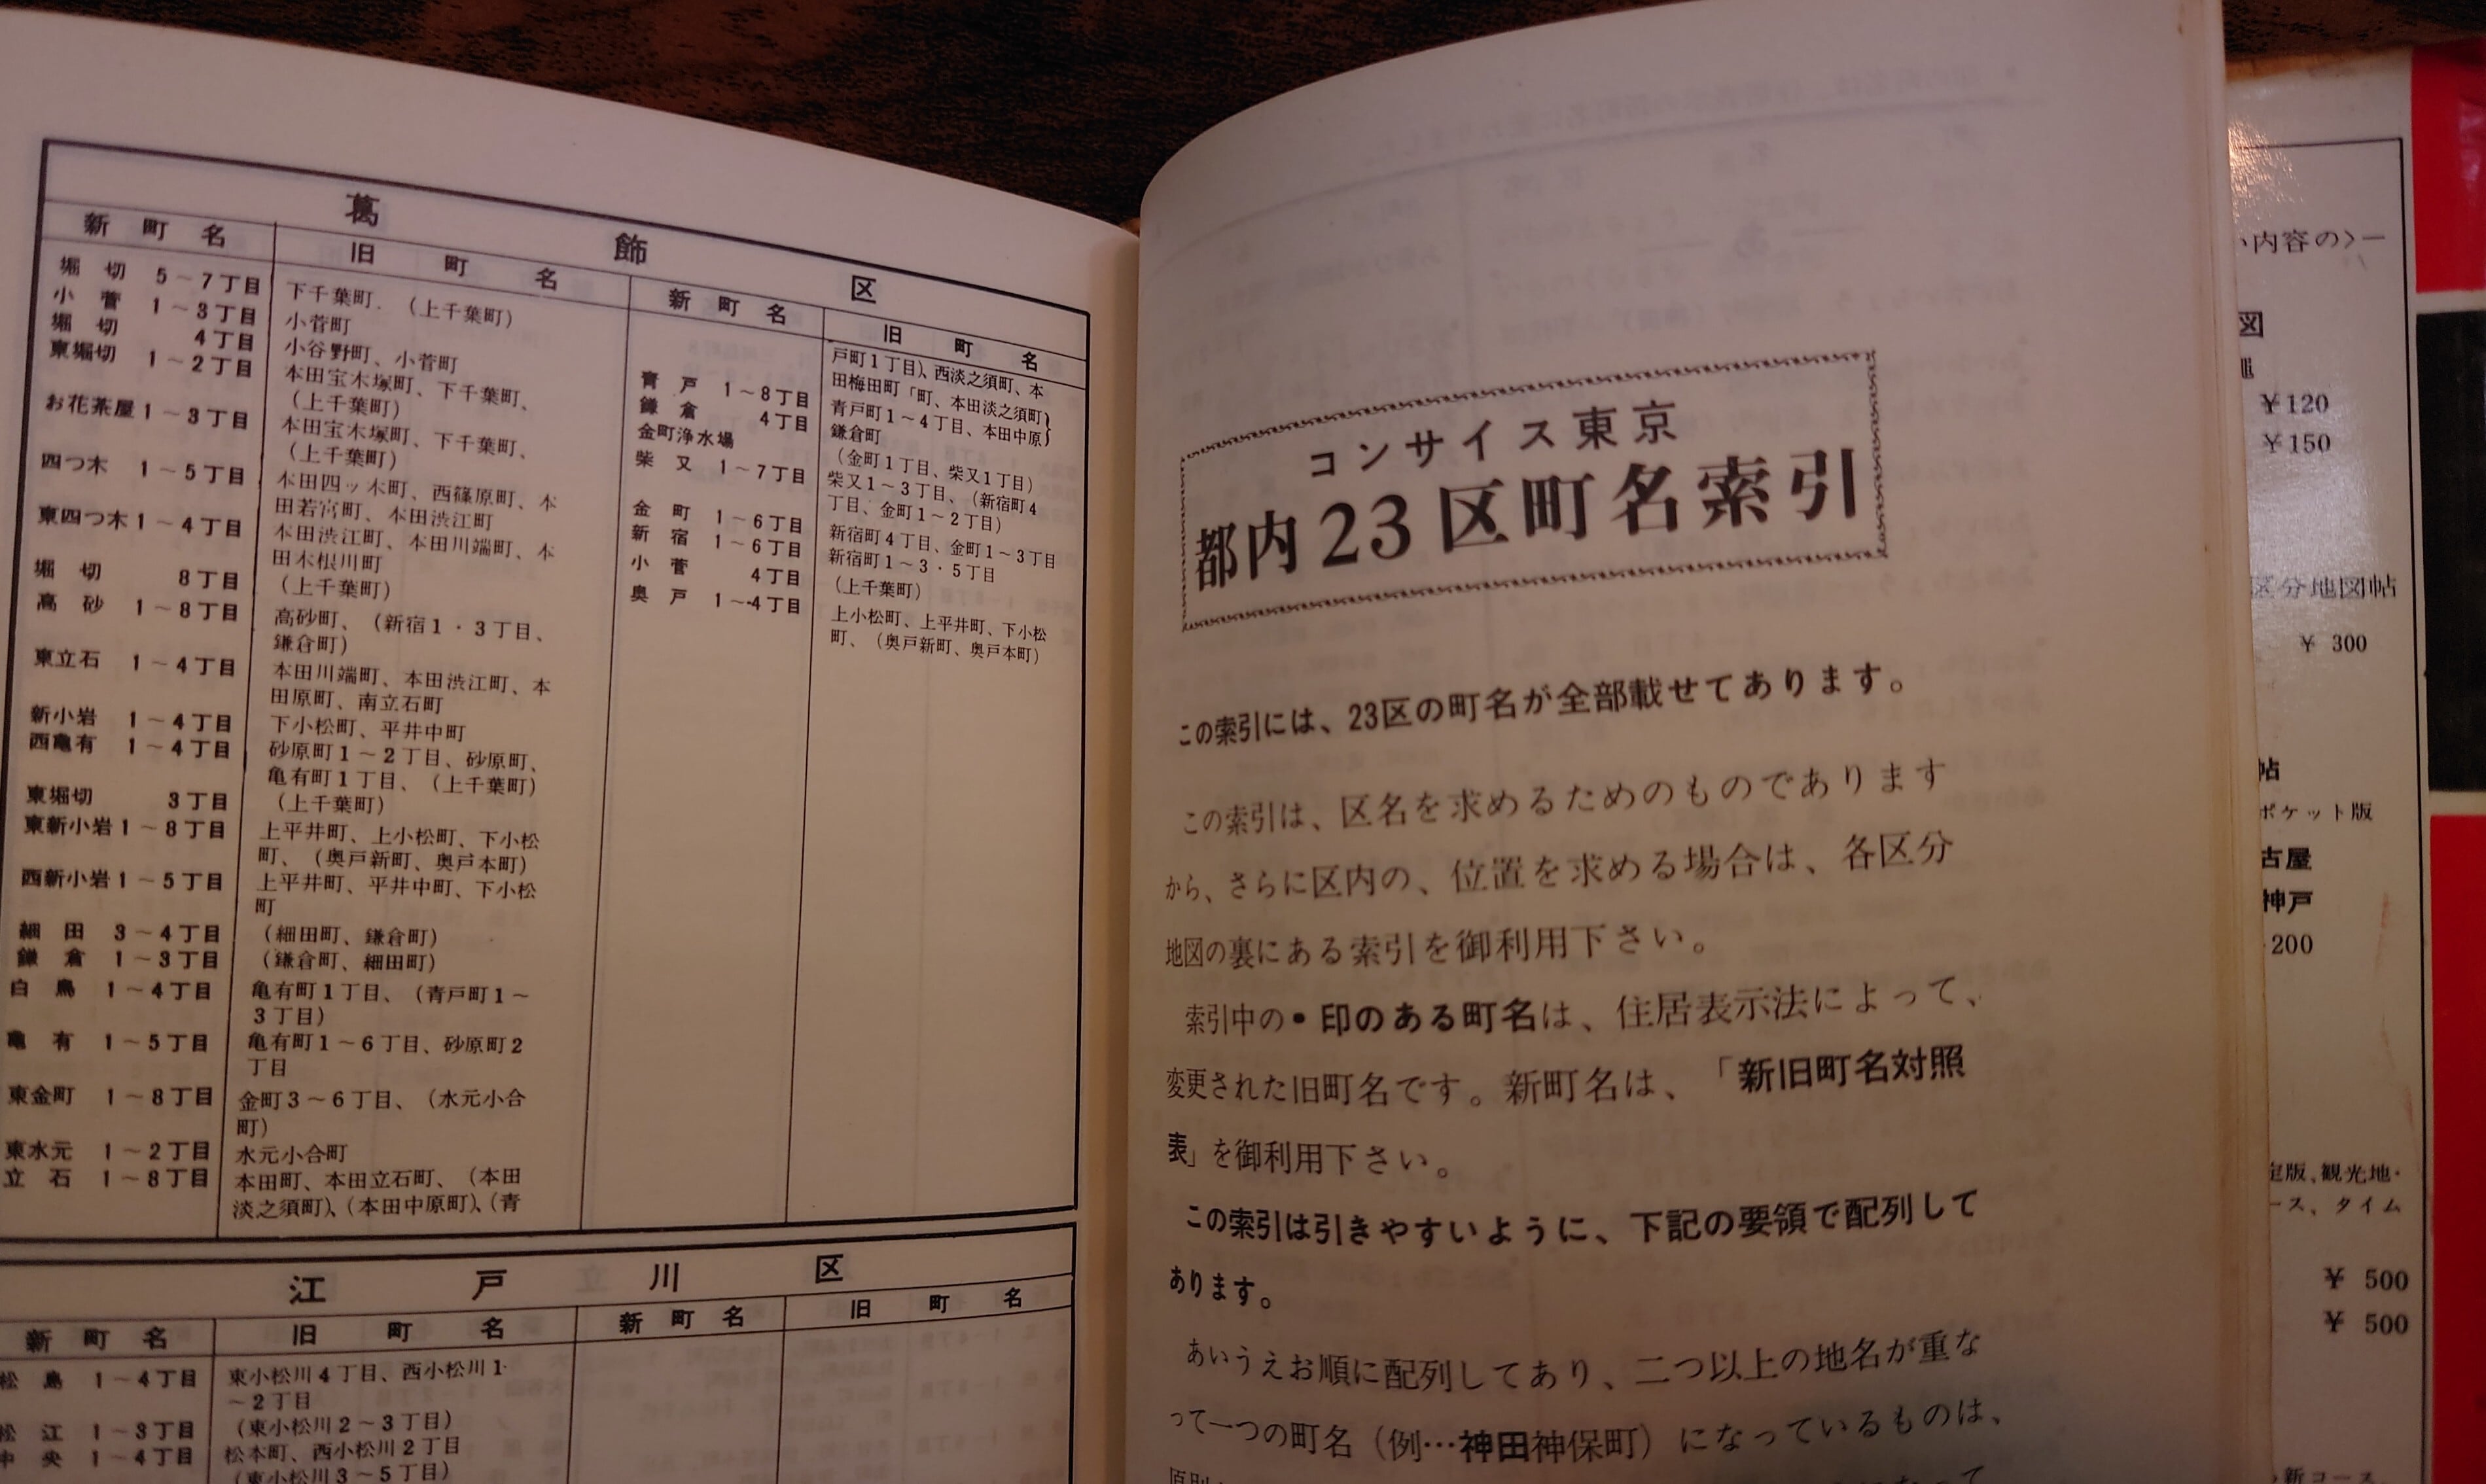 葛飾区
新町名 旧町名
堀切 5~7丁目 下千葉町、(上千葉町)
小菅 1~3丁目 小菅町
堀切 4丁目 小谷野町、小菅町
東堀切 1~2丁目 本田宝木塚町、下千葉町、
(上千葉町)
お花茶屋 1~3丁目 本田宝木塚町、下千葉町、
(上千葉町)
四つ木 1~5丁目 本田四ッ木町、西篠原町、本
田若宮町、本田渋江町
東四つ木 1~4丁目 本田渋江町、本田川端町、本
田木根川町
堀切 8丁目 (上千葉町)
高砂 1~8丁目 高砂町、(新宿1・3丁目、
鎌倉町)
東立石 1~4丁目 本田川端町、本田渋江町、本
田原町、南立石町
新小岩 1~4丁目 下小松町、平井中町
西亀有 1~4丁目 砂原町1~2丁目、砂原町、
亀有町1丁目、(上千葉町)
東堀切 3丁目 (上千葉町)
東新小岩 1~8丁目 上平井町、上小松町、下小松
町、(奥戸新町、奥戸本町)
西新小岩 1~5丁目 上平井町、平井中町、下小松
町
細田 3~4丁目 (細田町、鎌倉町)
鎌倉 1~3丁目 (鎌倉町、細田町)
白鳥 1~4丁目 亀有町1丁目、(青戸町1~
3丁目)
亀有 1~5丁目 亀有町1~6丁目、砂原町2
丁目
東金町 1~8丁目 金町3~6丁目、(水元小合
町)
東水元 1~2丁目 水元小合町
立石 1~8丁目 本田町、本田立石町、(本田
淡之須町)、(本田中原町)、(青
新町名 旧町名
戸町1丁目)、西淡之須町、本
田梅田町「町、本田淡之須町}
青戸 1~8丁目 青戸町1~4丁目、本田中原}
鎌倉 4丁目 鎌倉町
金町浄水場 (金町1丁目、柴又1丁目)
柴又 1~7丁目 柴又1~3丁目、(新宿町4
丁目、金町1~2丁目)
金町 1~6丁目 新宿町4丁目、金町1~3丁目
新宿 1~6丁目 新宿町1~3・5丁目
小菅 4丁目 (上千葉町)
奥戸 1~4丁目 上小松町、上平井町、下小松
町、(奥戸新町、奥戸本町)
江戸川区
新町名 旧町名 新町名 旧町名
松島 1~4丁目 東小松川4丁目、西小松川1
~2丁目
松江 1~3丁目 (東小松川2~3丁目)
中央 1~4丁目 松本町、西小松川2丁目
(東小松川3~5丁目)
コンサイス東京
都内23区町名索引
この索引には、23区の町名が全部載せてあります。
この索引は、区名を求めるためのものであります
から、さらに区内の、位置を求める場合は、各区分
地図の裏にある索引を御利用下さい。
索引中の・印のある町名は、住居表示法によって、
変更された旧町名です。新町名は、「新旧町名対照
表」を御利用下さい。
この索引は引きやすいように、下記の要領で配列して
あります。
あいうえお順に配列してあり、二つ以上の地名が重な
って一つの町名(例…神田神保町)になっているものは、
内容の>ー
図
¥120
¥150
区分地図帖
¥ 300
帖
ポケット版
古屋
神戸
200
定版、観光地・
ース、タイム
¥ 500
¥ 500
新コース